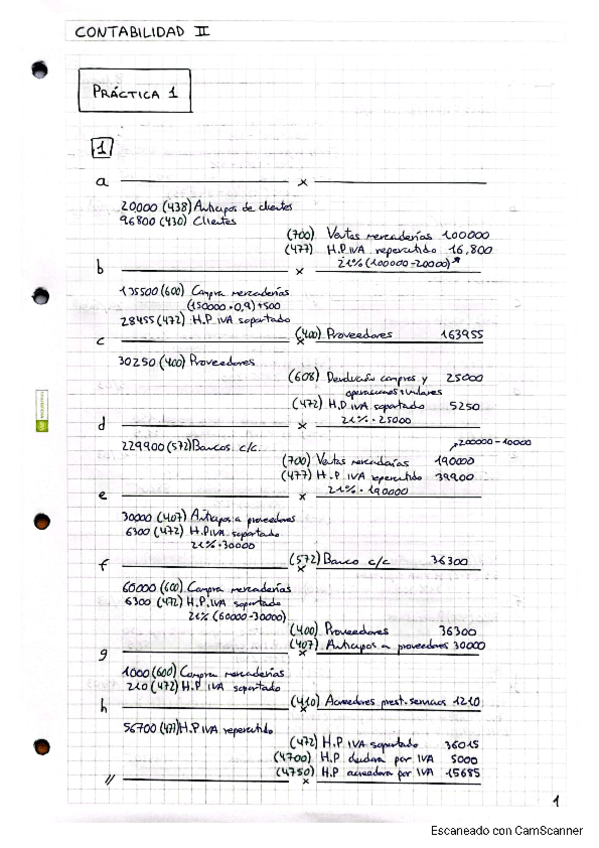 CONTABILIDAD II
PRÁCTICA 1
1
a x
20,000 (438) Anticipos de clientes
96800 (430) Clientes
(700) Ventas mercaderías 100000
(477) H.P IVA repercutido 16,800
21% (100000-20000)*
b x
135500 (600) Compra mercaderías
(150000·0,9)+500
28455 (472) H.P IVA soportado
(400) Proveedores 163955
c x
30250 (400) Proveedores
(608) Devolución compras y 25000
operaciones similares
(472) H.P IVA soportado 5250
21% · 25000
d x
229900 (572) Bancos c/c. 200000-10000
(700) Ventas mercadarías 190000
(477) H.P IVA repercutido 39900
21% · 190000
e x
30000 (407) Anticipos a proveedores
6300 (472) H.P IVA soportado
21% · 30000
(572) Banco c/c 36300
f x
60000 (600) Compra mercaderías
6300 (472) H.P. IVA soportado
21% (60000-30000)
(400) Proveedores 36300
(407) Anticipos a proveedores 30000
g x
1000 (600) Compra mercaderías
210 (472) H.P IVA soportado
(410) Acreedores prest. servicios 1210
h x
56700 (477) H.P IVA repercutido
(472) H.P IVA soportado 36015
(4700) H.P deudora por IVA 5000
(4750) H.P acreedora por IVA 15685
// x
1
Escaneado con CamScanner